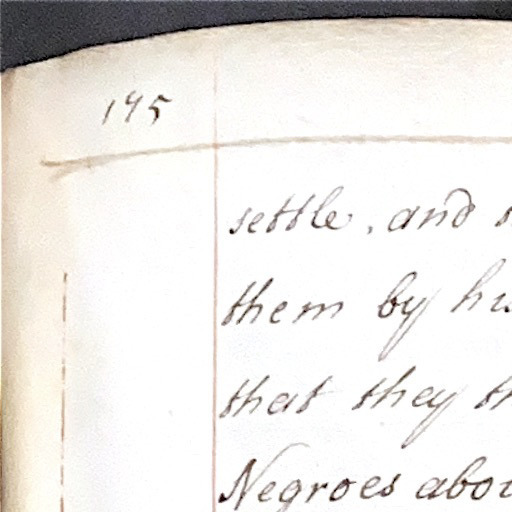 195
settle, and
them by
that they
Negroes